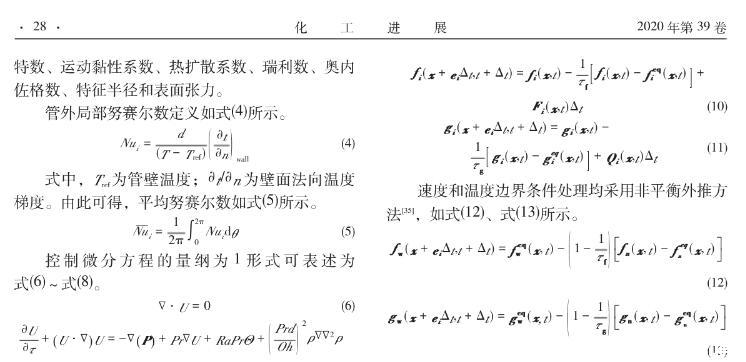 · 28 ·
化 工 进 展
2020 年第 39 卷
特数、运动黏性系数、热扩散系数、瑞利数、奥内
佐格数、特征半径和表面张力。
管外局部努赛尔数定义如式(4)所示。
Nu_i = d/(T − T_ref) (∂t/∂n)_wall (4)
式中，T_ref为管壁温度；∂t/∂n为壁面法向温度
梯度。由此可得，平均努赛尔数如式(5)所示。
N̅u̅_i = 1/2π ∫_0^2π Nu_i dθ (5)
控制微分方程的量纲为 1 形式可表述为
式(6) ~ 式(8)。
∇ · U = 0 (6)
∂U/∂τ + (U · ∇)U = −∇(P) + Pr∇U + RaPrΘ + (Prd/Oh)^2 ρ∇∇^2ρ
f_i(x + e_iΔ_t,t + Δ_t) = f_i(x,t) − 1/τ_f [f_i(x,t) − f_i^eq(x,t)] +
F_i(x,t)Δ_t (10)
g_i(x + e_iΔ_t,t + Δ_t) = g_i(x,t) −
1/τ_g [g_i(x,t) − g_i^eq(x,t)] + Q_i(x,t)Δ_t (11)
速度和温度边界条件处理均采用非平衡外推方
法[35]，如式(12)、式(13)所示。
f_w(x + e_iΔ_t,t + Δ_t) = f_w^eq(x,t) − (1 − 1/τ_f)[f_n(x,t) − f_n^eq(x,t)]
(12)
g_w(x + e_iΔ_t,t + Δ_t) = g_w^eq(x,t) − (1 − 1/τ_g)[g_n(x,t) − g_n^eq(x,t)]